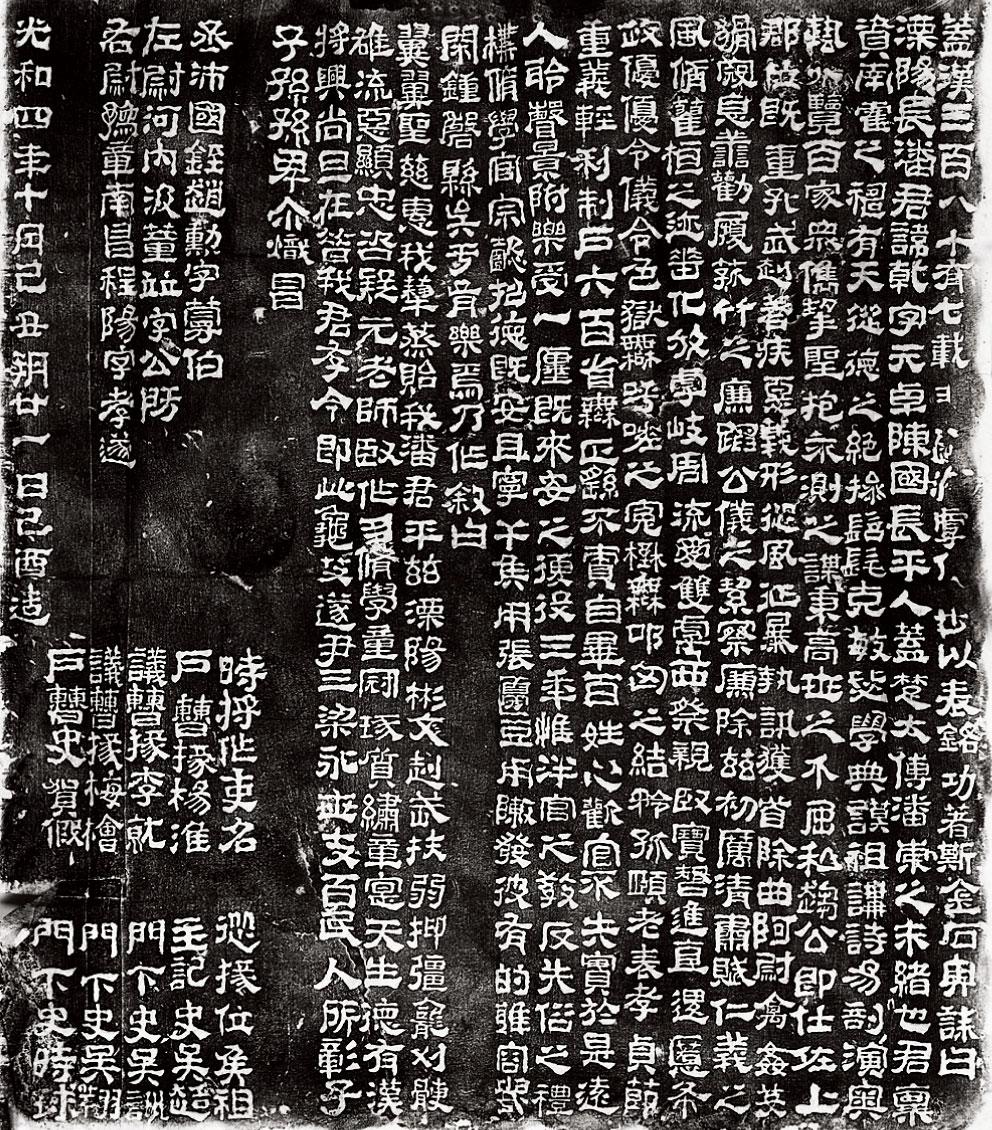 蓋漢三百八十有七載以表銘功著斯金石畀誄曰
溧陽長潘君諱乾字元卓陳國長平人蓋楚太傅潘崇之末緒也君稟
資南霍之神有天從德之絕操髫髦克敏學典謨祖講詩易剖演奧
藝外覽百家衆儁挈聖抱不測之謀秉高世之介屈私趨公即仕佐上
郡位既重孔武赳著疾惡義形從風征暴執訊獲首除曲阿尉禽姦戔
猾寇息善歡履菰竹之廉蹈公儀之絜察廉除茲初厲清肅賦仁義之
風脩之迹垂化放虖岐周流愛雙虖親臤寶智進直退慝布
政優優令儀令色獄無呼嗟之冤壄無叩匈之結矜孤頤老表孝貞節
重義輕利制戶六百省無正繇不責自畢百姓心歡官不失實於是遠
人聆聲景附樂受一廛既來安之復役三年惟泮宮之教反失俗之禮
構脩學官宗懿招德既安且寧干侯用張籩豆用陳發彼有的雅容畢
閑鍾磬縣矣于胥樂焉乃作敘曰
翼翼聖慈惠我犂蒸貽我潘君平茲溧陽彬文赳武扶弱抑彊刈骾
雄流惡顯忠咨疑元老師臤作朋脩學童冠琢質繡章寔天生德有漢
將興尚旦在昔我君存今即此龜艾遂尹三梁永世支百民人所彰子
子孫孫卑尒熾昌
丞沛國銍趙勳字蔓伯
左尉河內汲董並字公房
右尉豫章南昌程陽字孝遂
時將作吏名
戶曹掾楊淮
議曹掾李就
議曹掾梅檜
戶曹史賀
從掾位侯祖
主記史吳超
門下史吳訓
門下史吳翔
門下史時球
光和四年十月己丑朔廿一日己酉造